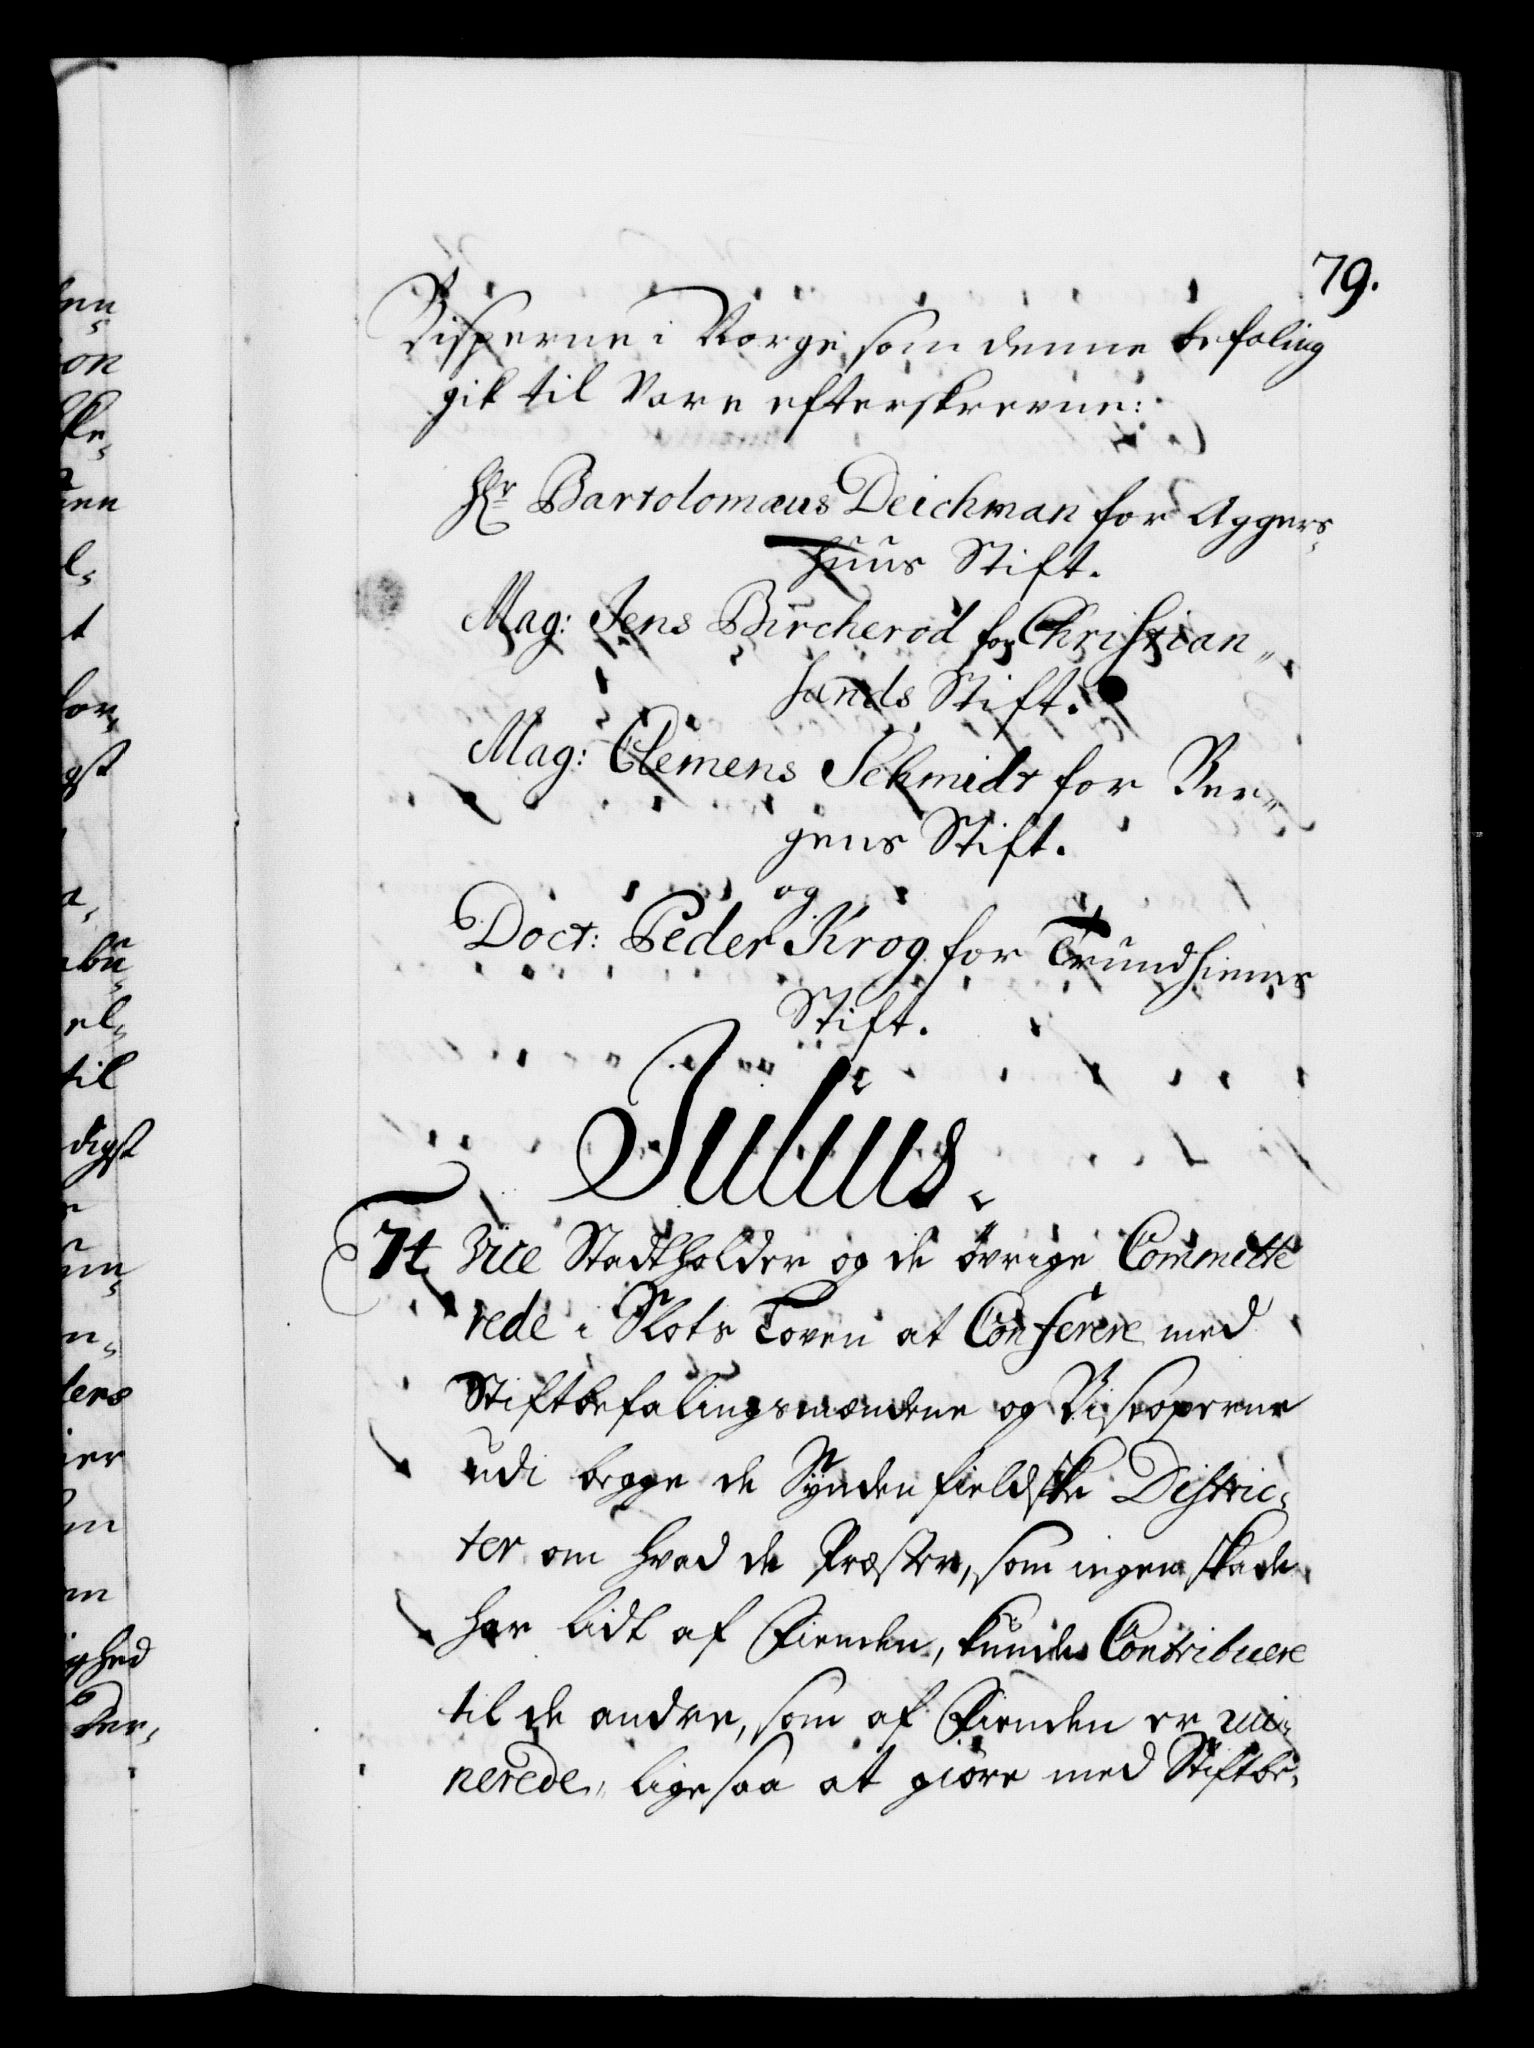 79.
Bisperne i Norge som denne befaling
gik til vare efterskrevne:
Hr Bartolomæus Deichman for Aggers-
huus Stift.
Mag: Jens Bircherod for Christian-
sands Stift.
Mag: Clemens Schmidt for Ber-
gens Stift.
og
Doct: Peder Krog for Trundhiems
Stift.
Julius.
74 Vice Stadtholder og de øvrige Committe
rede i Slots Loven at Conferere med
Stiftbefalingsmændene og Biscoperne
udi begge de Syndenfieldske Distric-
ter om hvad de Præster, som ingen skade
har lidt af Fienden, kunde Contribuere
til de andre, som af Fienden er rui-
nerede, ligesaa at giøre med Stiftbe-